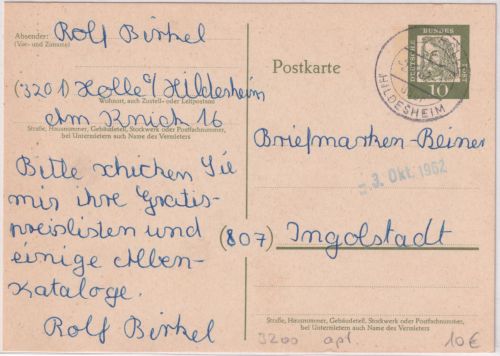 Absender:
(Vor- und Zuname)
Rolf Birkel
(3201) Holle ü/ Hildesheim
Wohnort, auch Zustell- oder Leitpostamt
Am Knick 16
Straße, Hausnummer, Gebäudeteil, Stockwerk oder Postfachnummer,
bei Untermietern auch Name des Vermieters
Bitte schicken Sie
mir ihre Gratis-
preislisten und
einige Alben-
kataloge.
Rolf Birkel
Postkarte
DEUTSCHE BUNDESPOST
10
HILDESHEIM
Briefmarken-Beiner
3. Okt. 1962
(807) Ingolstadt
Straße, Hausnummer, Gebäudeteil, Stockwerk oder Postfachnummer,
bei Untermietern auch Name des Vermieters
3200 apt. 10€